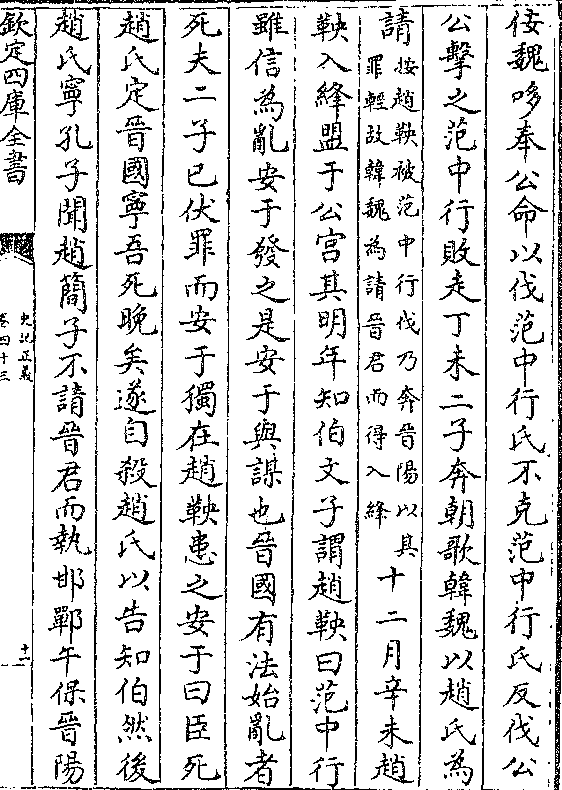 佞魏哆奉公命以伐范中行氏不克范中行氏反伐公
公擊之范中行敗走丁未二子奔朝歌韓魏以趙氏為
請
按趙鞅被范中行伐乃奔晉陽以其
罪輕故韓魏為請晉君而得入絳
十二月辛未趙
鞅入絳盟于公宮其明年知伯文子謂趙鞅曰范中行
雖信為亂安于發之是安于與謀也晉國有法始亂者
死夫二子已伏罪而安于獨在趙鞅患之安于曰臣死
趙氏定晉國寧吾死晚矣遂自殺趙氏以告知伯然後
趙氏寧孔子聞趙簡子不請晉君而執邯鄲午保晉陽
欽定四庫全書
史記正義
卷四十三
十一